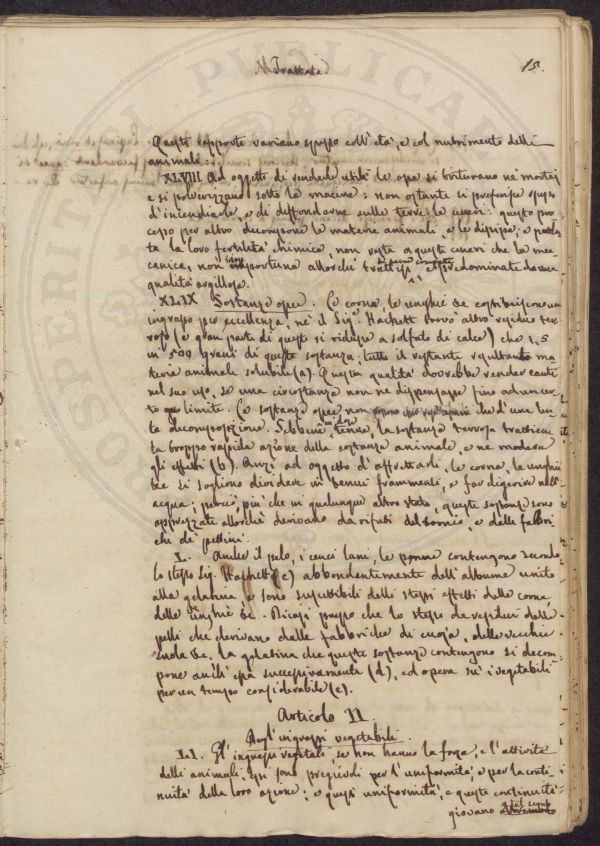 Trattato.
15.
Questi rapporti variano spesso coll'età, e col nutrimento delli
animali.
XLVIII Ad oggetto di renderle utili le ossa si triturano ne' mortaj
e si polverizzano sotto la macine: non ostante si preferisce spesso
d'incendiarle, e di diffonderne sulle terre le ceneri: questo pro
cesso per altro decompone le materie animali, e le dissipa: e perdu
ta la loro fertilità chimica, non resta a queste ceneri che la mec
canica, non inopportuna allorchè trattisi di terre compatte, e predominate da una
qualità argillosa.
XLIX Sostanze ossee. Le corna, le unghie &c costituiscono un
ingrasso per eccellenza, nè il Sig.r Hachett trovò altro residuo ter
roso (e gran parte di questo si ridusse a solfato di calce) che 1,5
in 500 grani di queste sostanze; tutto il restante resultando ma
teria animale solubile (a). Questa qualità dovrebbe render cauti
nel suo uso, se una circostanza non ne dispensasse fino ad un cer
to limite. Le sostanze ossee non che d'una len
ta decomposizione. Sebbene in dose tenue, la sostanza terrosa trattiene
la troppo rapida azione della sostanza animale, e ne modera
gli effetti (b). Anzi ad oggetto d'affrettarli, le corna, le unghie
&c si sogliono dividere in tenui frammenti, e far digerire nell'
acqua; perciò, più che in qualunque altro stato, queste sostanze sono
apprezzate allorchè derivano da rifiuti del tornio, e dalle fabbri
che de' pettini.
L. Anche il pelo, i cenci lani, le penne contengono secondo
lo stesso Sig. Hachett (c) abbondantemente dell'albume unito
alla gelatina e sono suscettibili delli stessi effetti delle corna,
delle unghie &c. Dicasi presso che lo stesso de' residui delle
pelli che derivano dalle fabbriche di cuoja, delle vecchie
suola &c. La gelatina che queste sostanze contengono si decom
pone anch'essa successivamente (d), ed opera su' i vegetabili
per un tempo considerabile (e).
Articolo II.
Degl'ingrassi vegetabili.
LI. Gl'ingrassi vegetali, se non hanno la forza, e l'attività
delli animali, essi sono pregievoli per l'uniformità, e per la conti
nuità della loro azione; e questa uniformità, e questa continuità
giovano